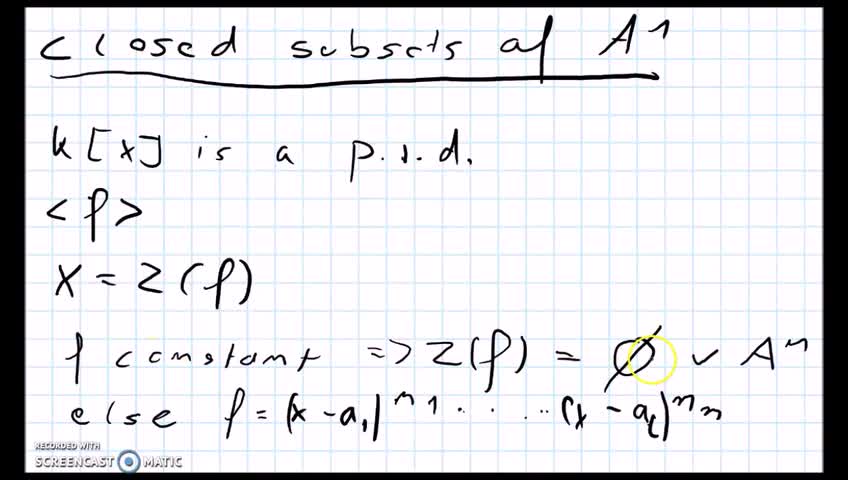 closed subsets of A^1
k[x] is a p.i.d.
<f>
X = Z(f)
f constant => Z(f) = ∅ ∨ A^n
else f = (x - a_1)^n1 . . . . . (x - a_l)^n_n
RECORDED WITH
SCREENCAST O MATIC